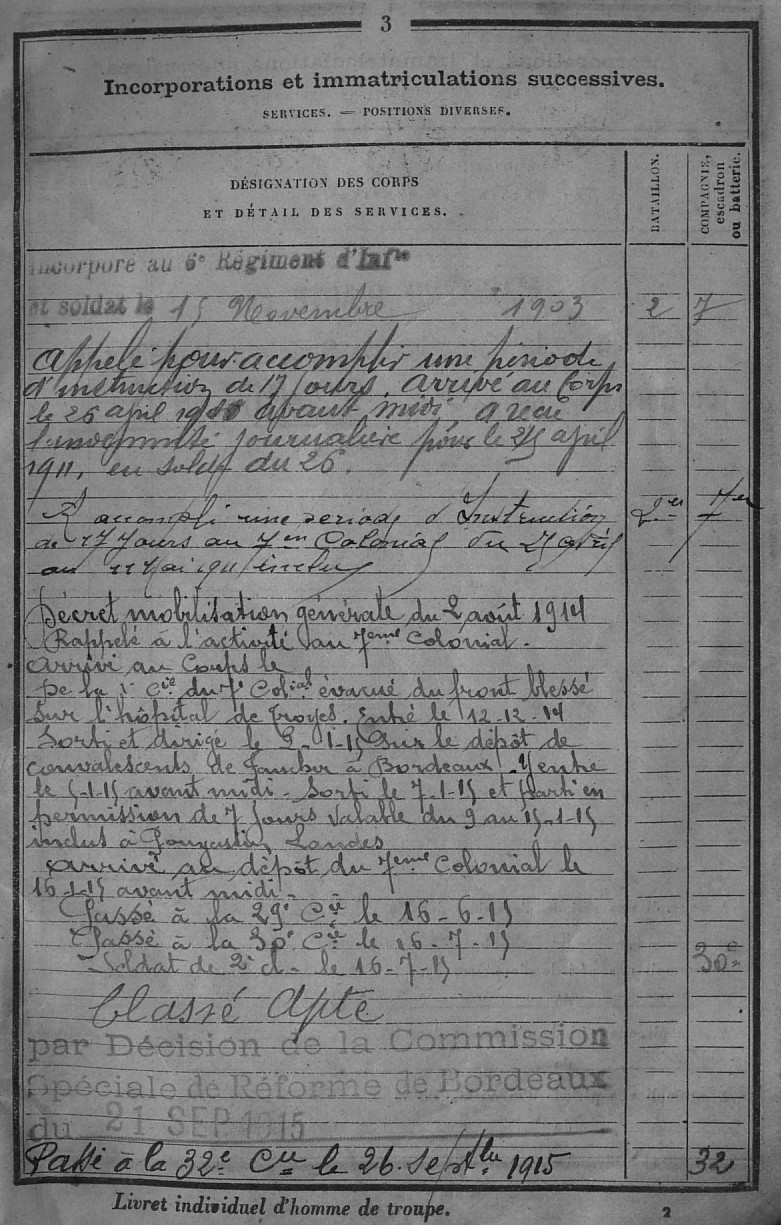 3
Incorporations et immatriculations successives.
SERVICES. — POSITIONS DIVERSES.
DÉSIGNATION DES CORPS
ET DÉTAIL DES SERVICES.
BATAILLON.
COMPAGNIE,
escadron
ou batterie.
Incorporé au 6e Régiment d'Infie
et soldat le 15 Novembre 1903 2 7
Appelé pour accomplir une période
d'instruction de 17 jours. arrivé au Corps
le 26 april avant midi a recu
l'indemnité journalière pour le 25 april
1911, en solde du 26.
A accompli une periode d'Instruction
de 17 Jours au 7em Colonial du
au 11 Mai 1911 inclus
Décret mobilisation générale du 2 août 1914
Rappelé à l'activité au 7eme Colonial.
arrivé au Corps le
De la Cie du 7e Colial évacué du front blessé
sur l'hôpital de Troyes. Entré le 12-12-14
Sorti et dirigé le 5-1-15 sur le dépôt de
convalescents de à Bordeaux. Y entre
le 5-1-15 avant midi - Sorti le 7-1-15 et parti en
permission de 7 Jours valable du 9 au 15-1-15
inclus à Landes
Arrivé au dépôt du 7eme Colonial le
16-1-15 avant midi -
Passé à la 29e Cie le 16-6-15
Passé à la 30e Cie le 16-7-15
Soldat de 2e cl. le 16-7-15
30e
Classé Apte
par Décision de la Commission
Spéciale de Réforme de Bordeaux
du 21 SEP 1915
Passé à la 32e Cie le 26. Septbre 1915 32
Livret individuel d'homme de troupe.
2